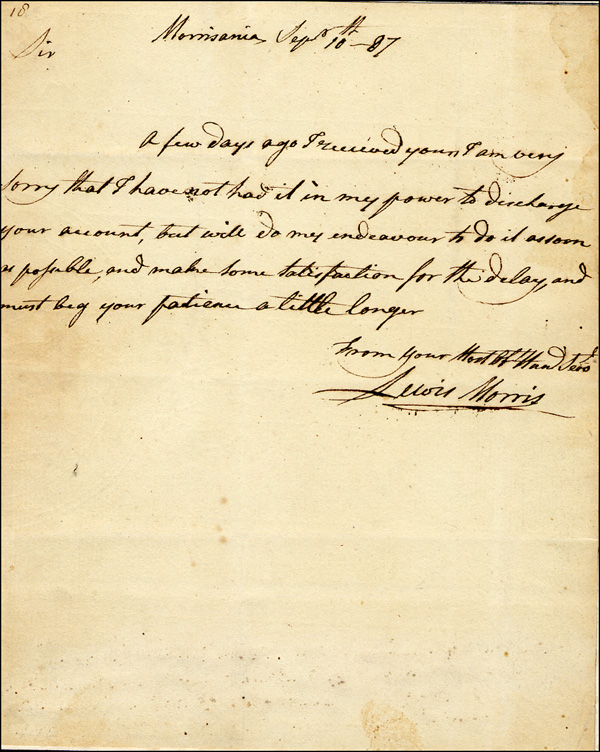 18
Morrisania Sepr 10th - 87
Sir
A few days ago I received yours I am very
sorry that I have not had it in my power to discharge
your account, but will do my endeavour to do it assoon
as possible, and make some satisfaction for the delay, and
must beg your patience a little longer
From your Most Obt Hum Servt
Lewis Morris